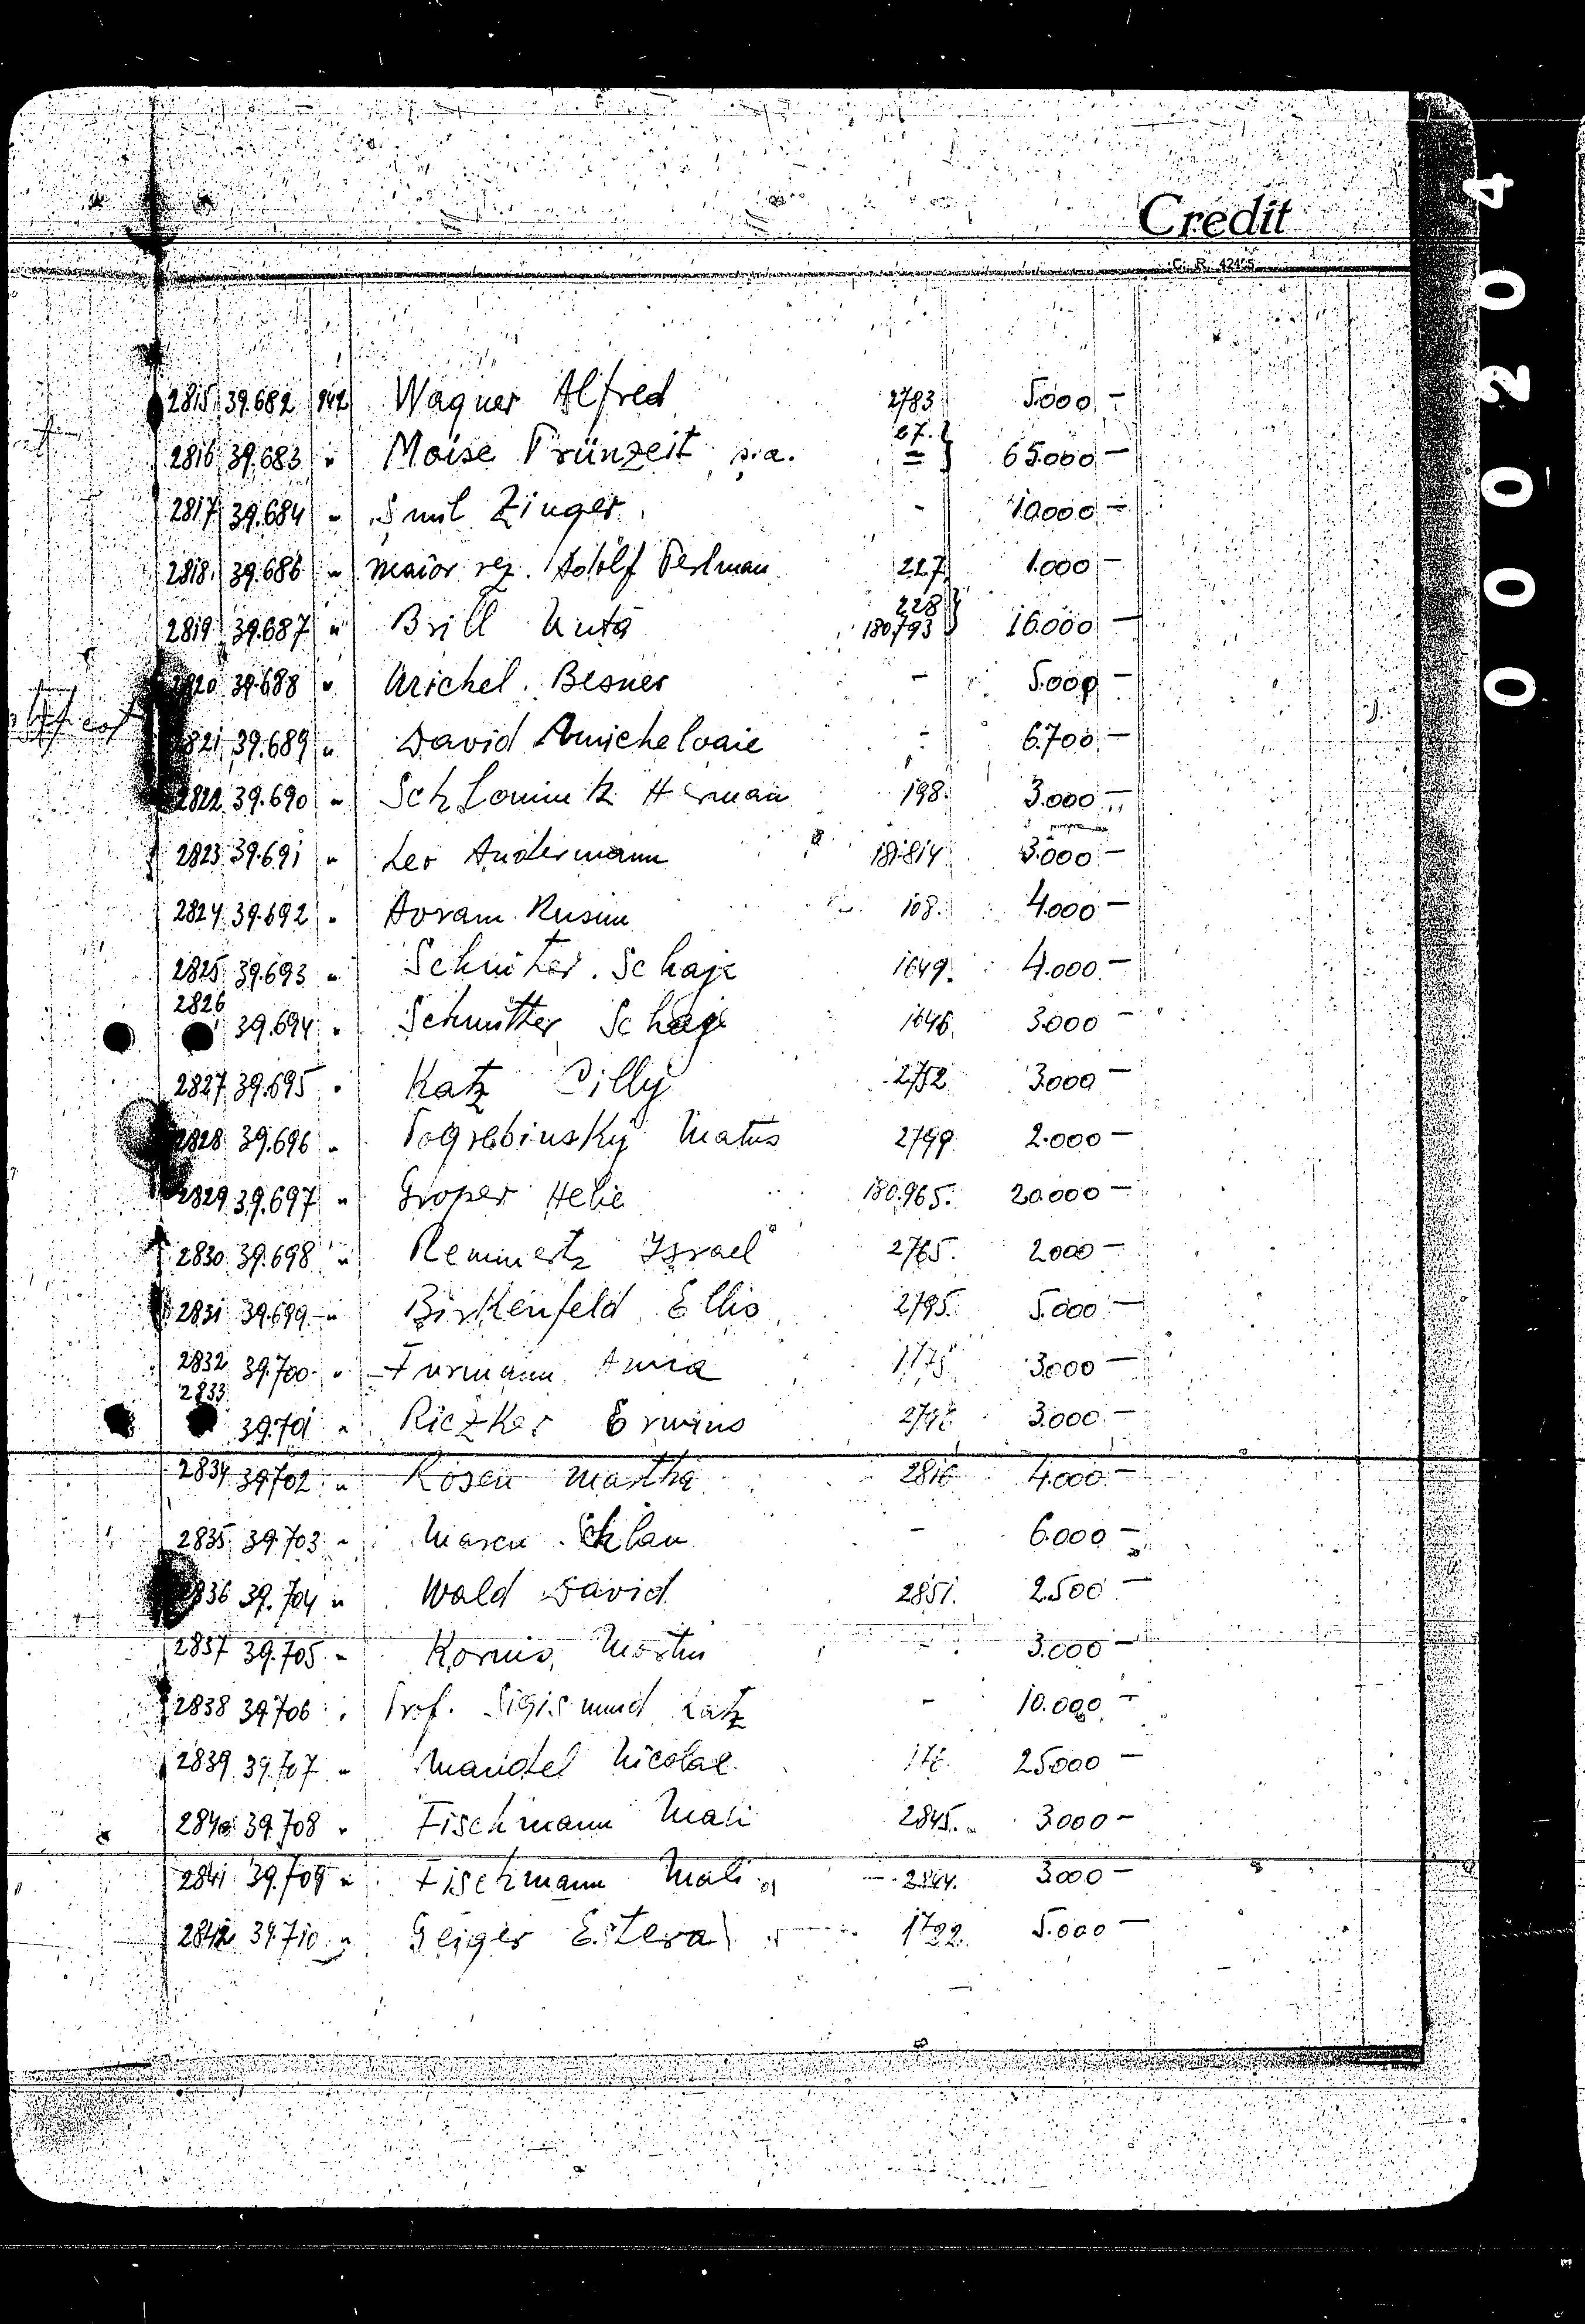 Credit
C. R. 42405
2815 39.682 942 Wagner Alfred 2783 5.000 —
2816 39.683 " Moise Prünzeit ș.a. 67. = } 65.000 —
2817 39.684 " Smil Zinger - 10.000 —
2818. 39.686 " Maior rez. Adolf Perlman 227 1.000 —
2819 39.687 " Brill Nuta 228 180793 } 16.000 —
2820 39.688 " Michel Besner - 5.000 —
2821 39.689 " David - 6.700 —
2822 39.690 " Herman 198. 3.000 —
2823 39.691 " Leo Andermann 181.814 3.000 —
2824 39.692 " Avram Rusim 108. 4.000 —
2825 39.693 " Schniter Schaje 1649. 4.000 —
2826 39.694 " Schnitter Schaje 1646. 3.000 —
2827 39.695 " Katz Cilly 2752 3.000 —
2828 39.696 " Pogrebinsky Matus 2799 2.000 —
2829 39.697 " Groper Helie 180.965. 20.000 —
2830 39.698 " Remmertz Israel 2765. 2000 —
2831 39.699 " Birkenfeld Ellis 2795. 5.000 —
2832 39.700 " Furmann Anna 1175 3.000 —
2833 39.701 " Riczker Erwino 3.000 —
2834 39.702 " Rosen Martha 2816 4.000 —
2835 39.703 " Marcu - 6.000 —
2836 39.704 " Wald David 2851. 2.500 —
2837 39.705 " Kornis Martin - 3.000 —
2838 39.706 " Prof. Sigismund Katz - 10.000 —
2839 39.707 " Mandel Nicolae 176. 25.000 —
2840 39.708 " Fischmann Mali 2845. 3.000 —
2841 39.709 " Fischmann Mali 2844. 3.000 —
2842 39.710 " Geiger Estera 1722. 5.000 —
000204